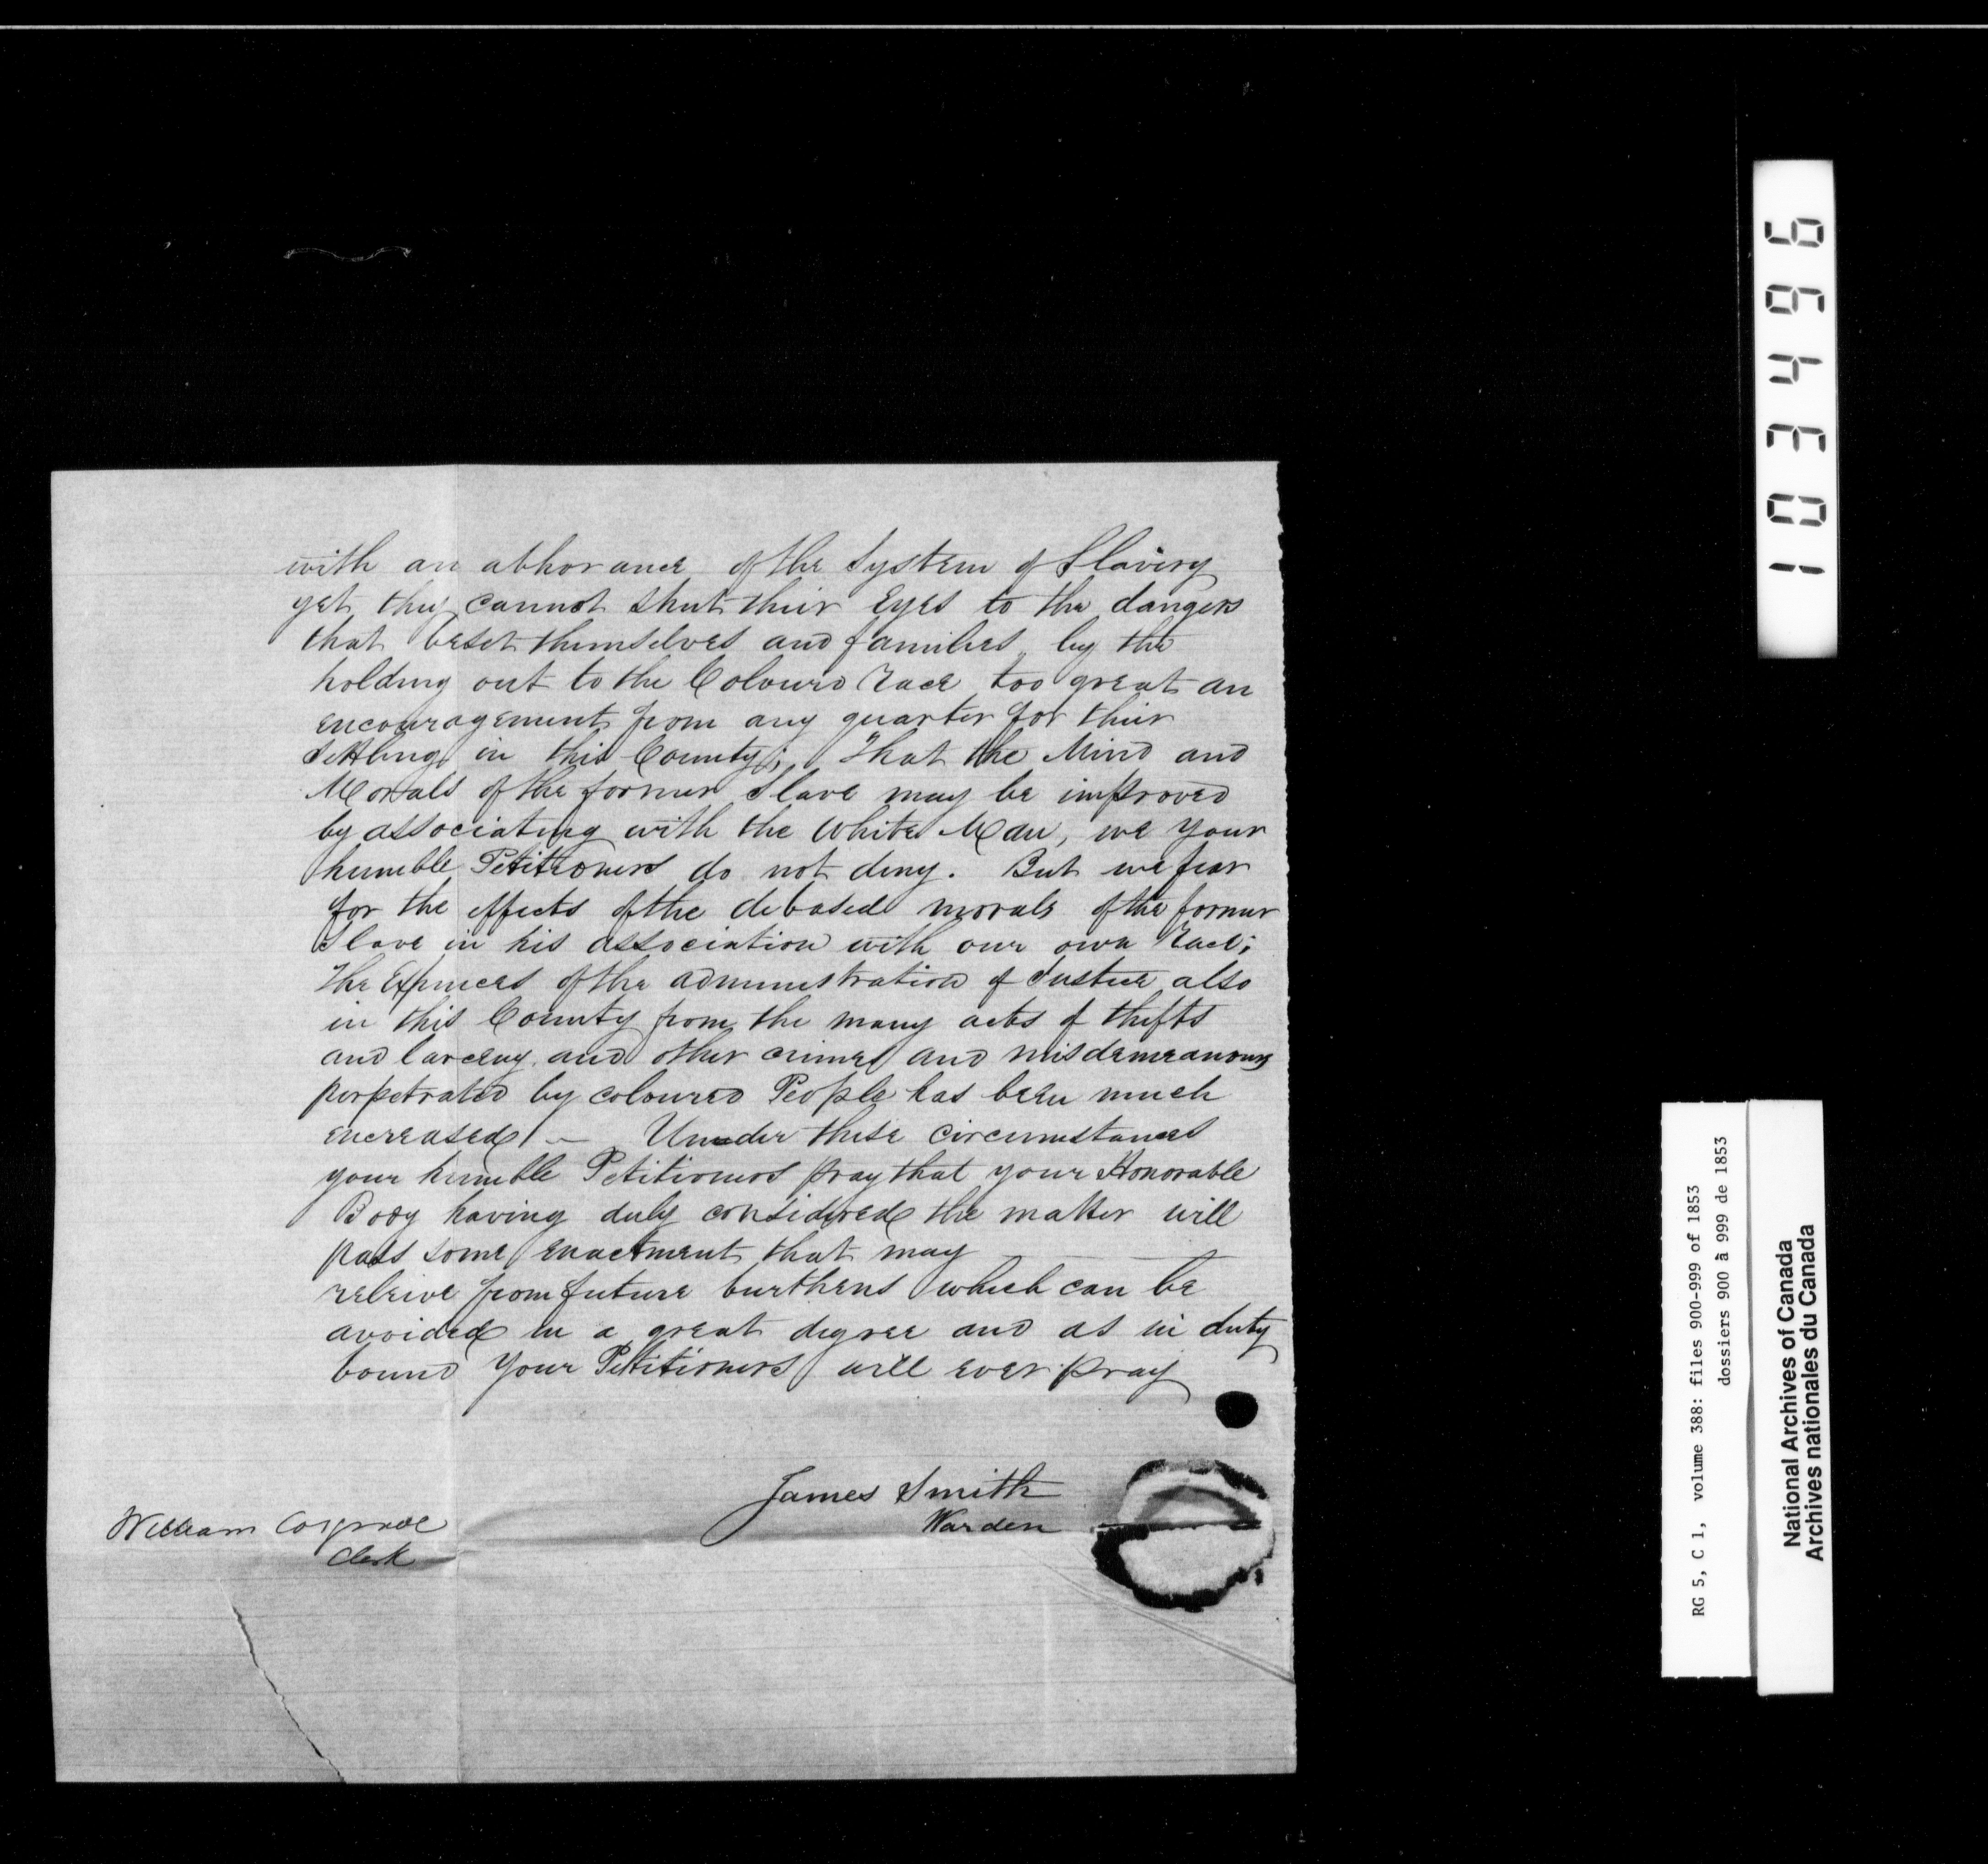 with an abhorance of the System of Slavery
yet they cannot shut their Eyes to the dangers
that beset themselves and families by the
holding out to the Coloured Race too great an
encouragement from any quarter for their
Settling in this County; That the Mind and
Morals of the former Slave may be improved
by associating with the White Man, we your
humble Petitioners do not deny. But we fear
for the effects of the debased morals of the former
Slave in his association with our own Race;
The Expences of the administration of Justice also
in this County from the many acts of thefts
and larceny and other crimes and misdemeanours
perpetrated by coloured People has been much
encreased — Under these circumstances
your humble Petitioners pray that your Honorable
Body having duly considered the matter will
pass some enactment that may
releive from future burthens which can be
avoided in a great degree and as in duty
bound Your Petitioners will ever pray
James Smith
Warden
William Cosgrove
Clerk
103496
RG 5, C 1, volume 388: files 900-999 of 1853
dossiers 900 à 999 de 1853
National Archives of Canada
Archives nationales du Canada